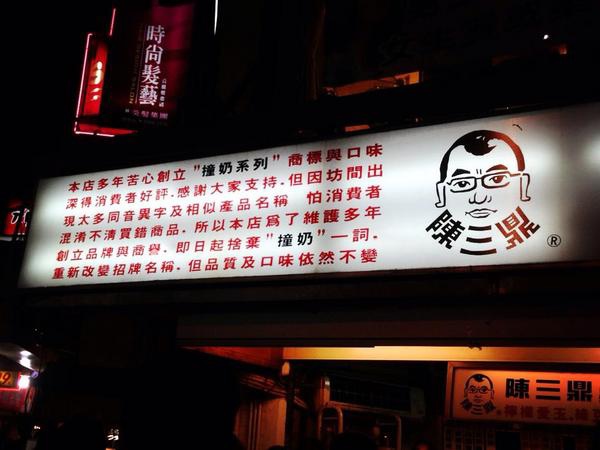 時尚髮藝
本店多年苦心創立"撞奶系列"商標與口味
深得消費者好評.感謝大家支持.但因坊間出
現太多同音異字及相似產品名稱 怕消費者
混淆不清買錯商品.所以本店為了維護多年
創立品牌與商譽.即日起捨棄"撞奶"一詞.
重新改變招牌名稱.但品質及口味依然不變
陳三鼎
®
陳三鼎
陳三鼎
檸檬愛玉.